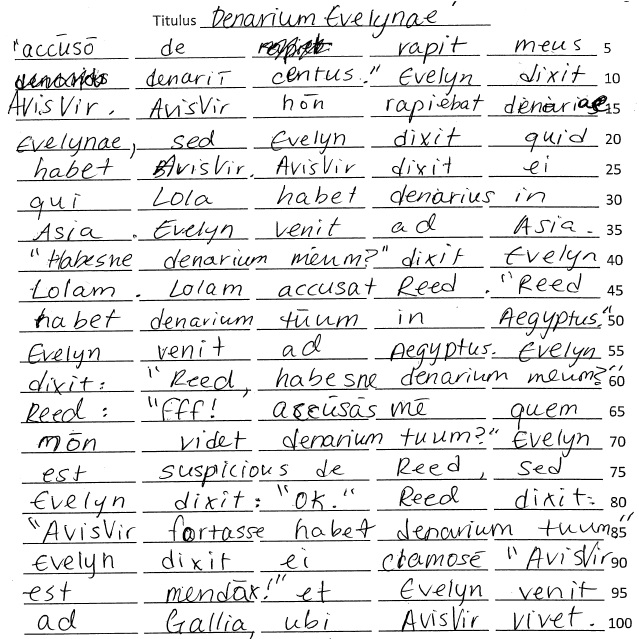 Titulus Denarium Evelynae
"accūsō de rapit meus 5
denariī centus." Evelyn dixit 10
AvisVir. AvisVir nōn rapiēbat denariae 15
Evelynae, sed Evelyn dixit quid 20
habet AvisVir. AvisVir dixit ei 25
qui Lola habet denarius in 30
Asia. Evelyn venit ad Asia. 35
"Habesne denarium meum?" dixit Evelyn 40
Lolam. Lolam accusat Reed. "Reed 45
habet denarium tūum in Aegyptus." 50
Evelyn venit ad Aegyptus. Evelyn 55
dixit: "Reed, habesne denarium meum?" 60
Reed: "Eff! accūsās mē quem 65
nōn videt denarium tuum?" Evelyn 70
est suspicious de Reed, sed 75
Evelyn dixit: "OK." Reed dixit: 80
"AvisVir fortasse habet denarium tuum" 85
Evelyn dixit ei clamosē "AvisVir 90
est mendāx!" et Evelyn venit 95
ad Gallia, ubi AvisVir vivet. 100